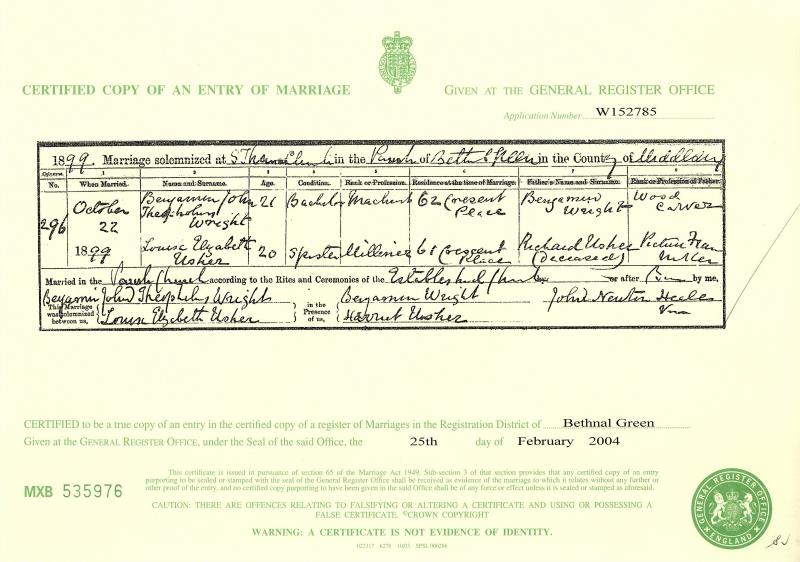 CERTIFIED COPY OF AN ENTRY OF MARRIAGE
GIVEN AT THE GENERAL REGISTER OFFICE
Application Number W152785
1899. Marriage solemnized at in the Parish of Bethnal Green in the County of Middlesex
Columns:— 1 2 3 4 5 6 7 8
No. When Married. Name and Surname. Age. Condition. Rank or Profession. Residence at the time of Marriage. Father's Name and Surname. Rank or Profession of Father.
296 October 22 1899
Benjamin John Theophilus Wright 21 Bachelor Machinist 62 Crescent Place Benjamin Wright Wood Carver
Louise Elizabeth Usher 20 Spinster Milliner Crescent Place Richard Usher (Deceased) Picture Frame Maker
Married in the Parish Church according to the Rites and Ceremonies of the Established Church or after by me,
This Marriage was solemnized between us, Benjamin John Theophilus Wright
Louise Elizabeth Usher
in the Presence of us, Benjamin Wright
Harriet Usher
John Newton Heales
CERTIFIED to be a true copy of an entry in the certified copy of a register of Marriages in the Registration District of Bethnal Green
Given at the GENERAL REGISTER OFFICE, under the Seal of the said Office, the 25th day of February 2004
MXB 535976
This certificate is issued in pursuance of section 65 of the Marriage Act 1949. Sub-section 3 of that section provides that any certified copy of an entry
purporting to be sealed or stamped with the seal of the General Register Office shall be received as evidence of the marriage to which it relates without any further or
other proof of the entry, and no certified copy purporting to have been given in the said Office shall be of any force or effect unless it is sealed or stamped as aforesaid.
CAUTION: THERE ARE OFFENCES RELATING TO FALSIFYING OR ALTERING A CERTIFICATE AND USING OR POSSESSING A
FALSE CERTIFICATE. ©CROWN COPYRIGHT
WARNING: A CERTIFICATE IS NOT EVIDENCE OF IDENTITY.
GENERAL REGISTER OFFICE
ENGLAND